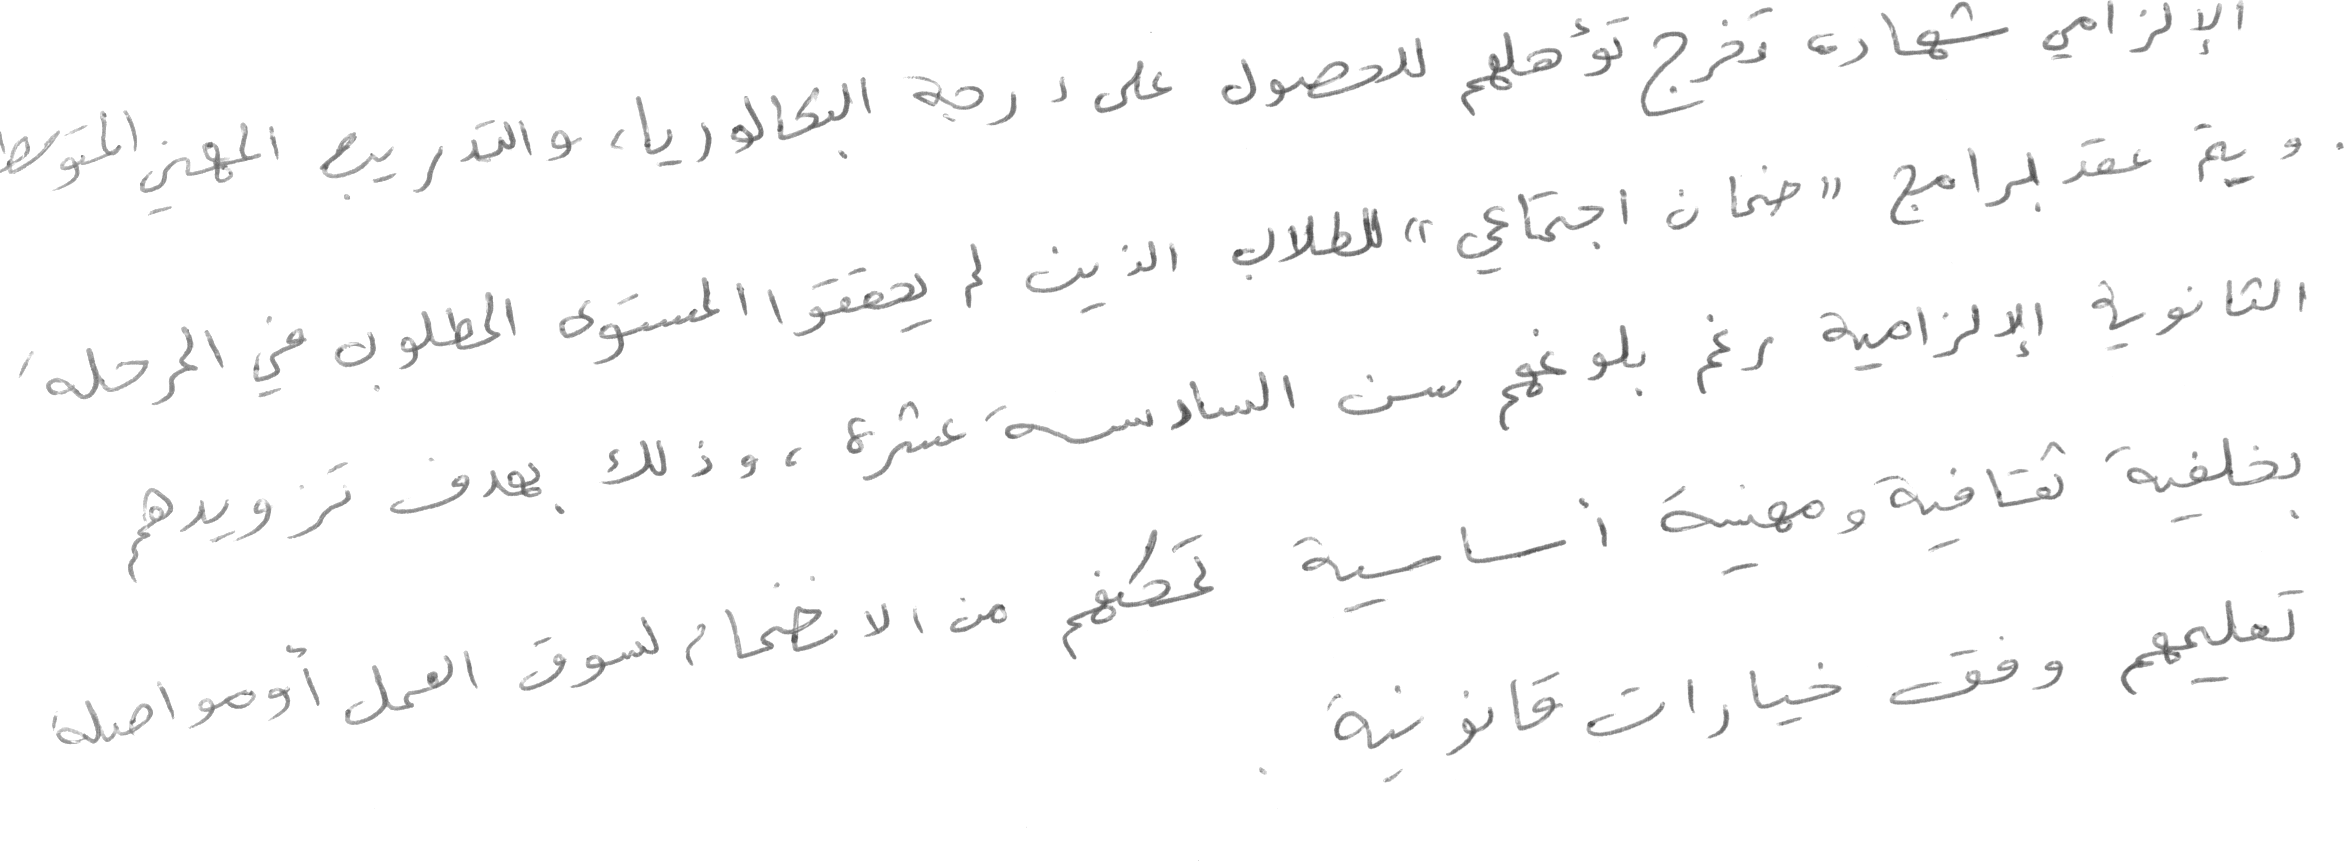 الإلزامي شهادة تخرج تؤهلهم للحصول على درجة البكالوريا، والتدريب المهني المتوسط
. ويتم عقد برامج "ضمان اجتماعي" للطلاب الذين لم يحققوا المستوى المطلوب في المرحلة
الثانوية الإلزامية رغم بلوغهم سن السادسة عشرة، وذلك بهدف تزويدهم
بخلفية ثقافية ومهنية أساسية تمكنهم من الانضمام لسوق العمل أو مواصلة
تعليمهم وفق خيارات قانونية .